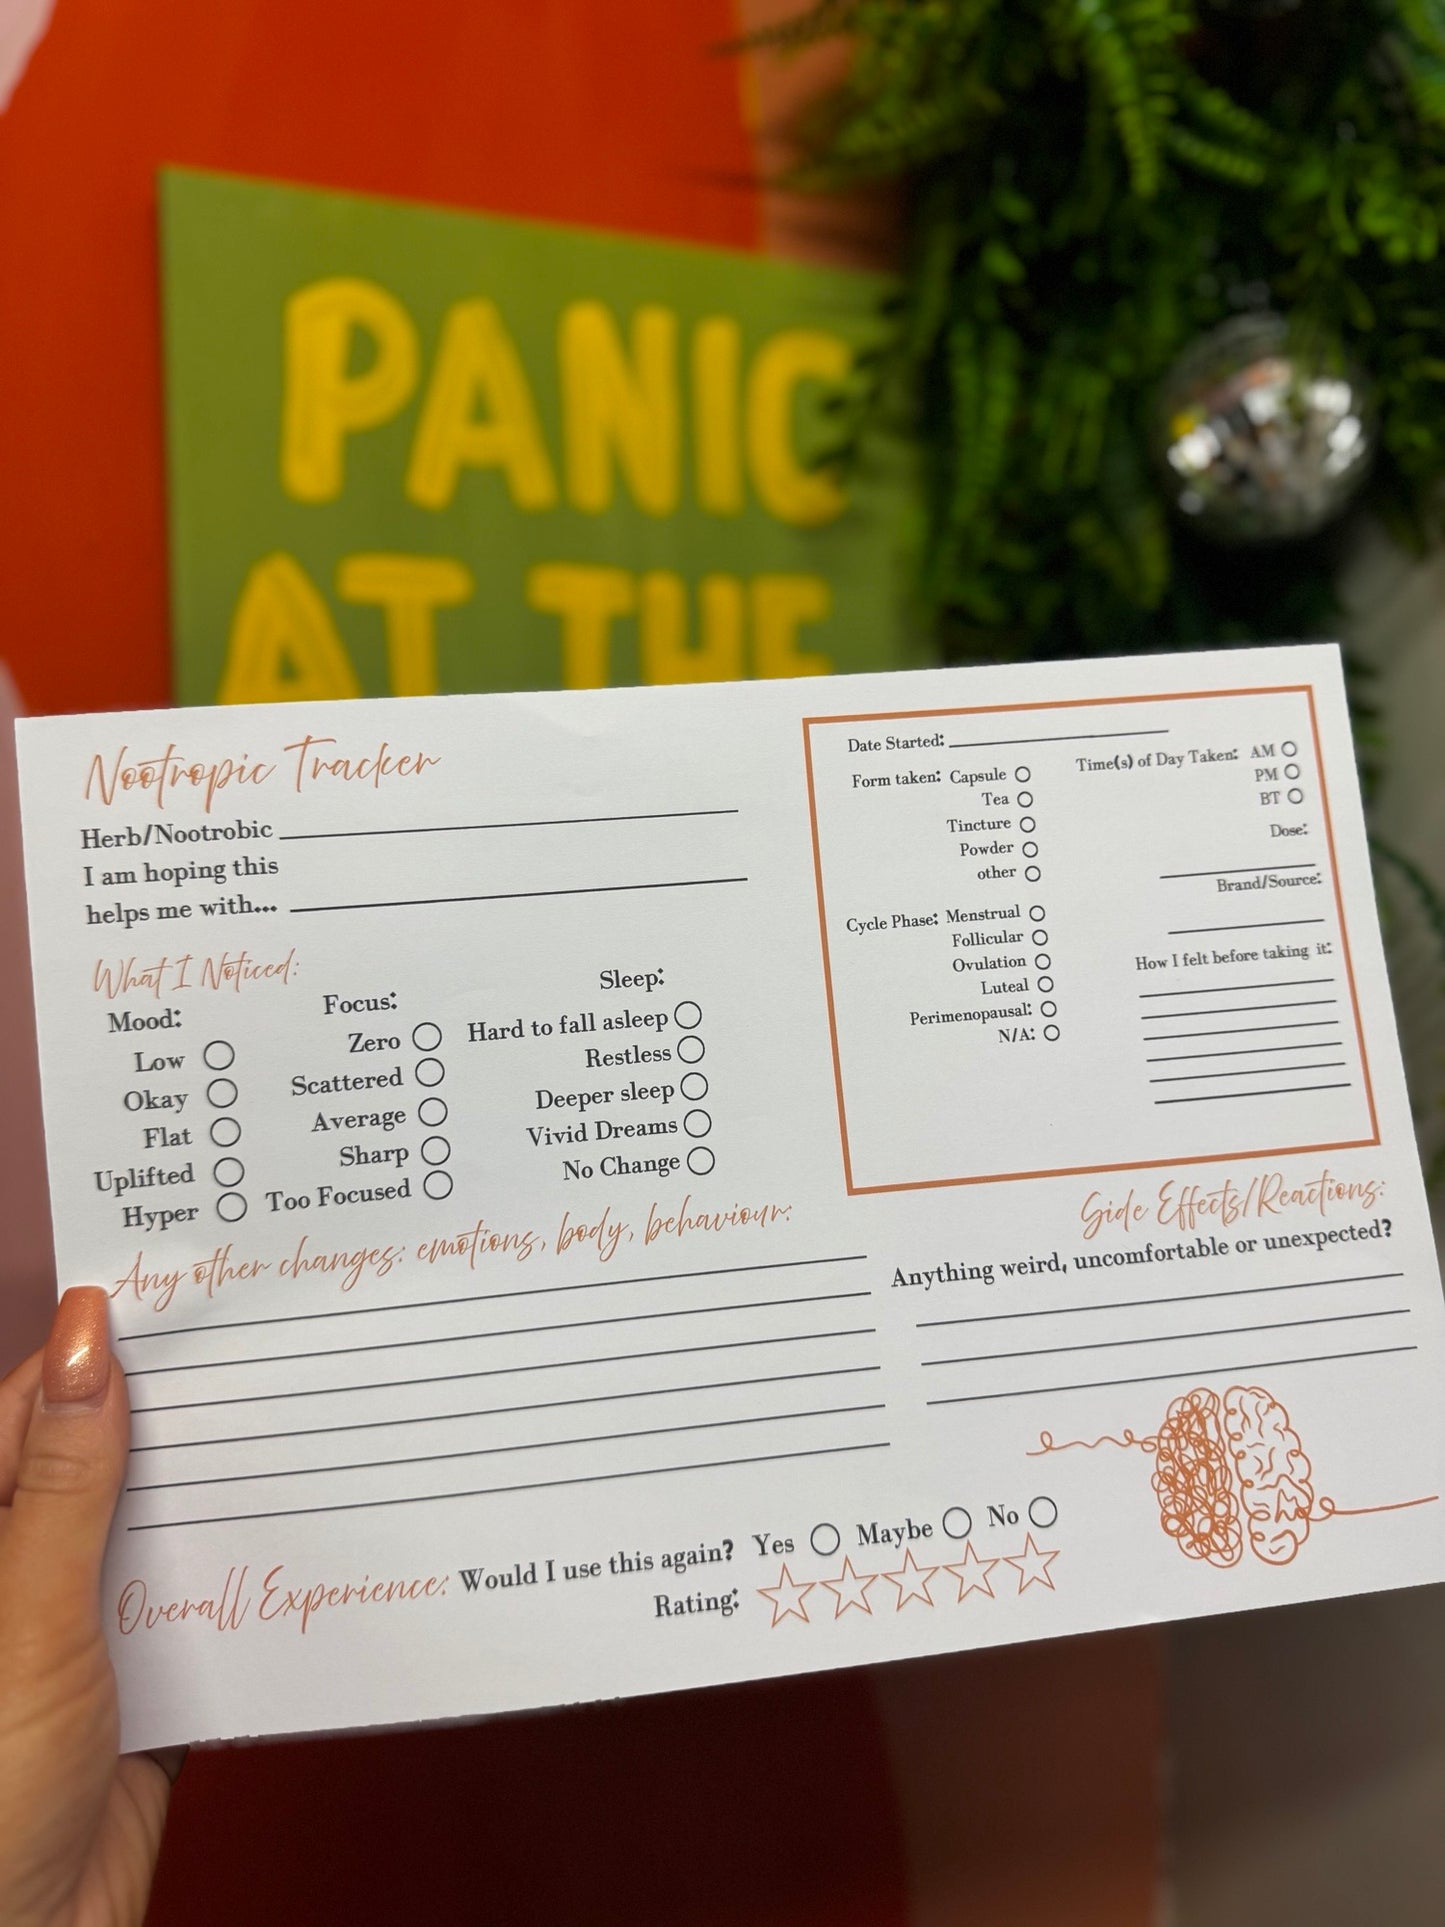 PANIC
AT THE
Nootropic Tracker
Herb/Nootrobic
I am hoping this
helps me with...
What I Noticed:
Mood:
Low
Okay
Flat
Uplifted
Hyper
Focus:
Zero
Scattered
Average
Sharp
Too Focused
Sleep:
Hard to fall asleep
Restless
Deeper sleep
Vivid Dreams
No Change
Date Started:
Form taken: Capsule
Tea
Tincture
Powder
other
Cycle Phase: Menstrual
Follicular
Ovulation
Luteal
Perimenopausal:
N/A:
Time(s) of Day Taken: AM
PM
BT
Dose:
Brand/Source:
How I felt before taking it:
Any other changes: emotions, body, behaviour:
Side Effects/Reactions:
Anything weird, uncomfortable or unexpected?
Overall Experience: Would I use this again? Yes Maybe No
Rating: